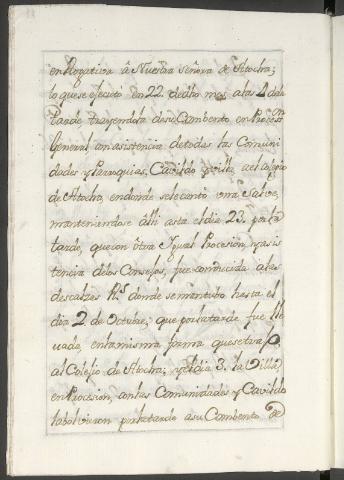 en Rogativa â Nuestra señora de Atocha;
lo que se ejecutó en 22. de dito mes, a las 4 de la
tarde trayendola de su Combento, en Prozess.on
General con asistencia de todas las Comuni
dades y Paroquias, Cavildo y villa, a el colegio
de Atocha, en donde se le cantó una Salve,
manteniendose alli asta el dia 23, por la
tarde, que con òtra Ygual Procesion, y asis
tencia de los Consejos, fue conducida a las
descalzas R.s donde se mantubo hasta el
dia 2 de Octubre; que por la tarde fue lle
vada, en la misma forma que se trajo
al Colejio de Atocha; y el dia 3. la Villa,
en Procesion, con las Comunidades y Cavildo
la bolvieron por la tarde a su Combento de